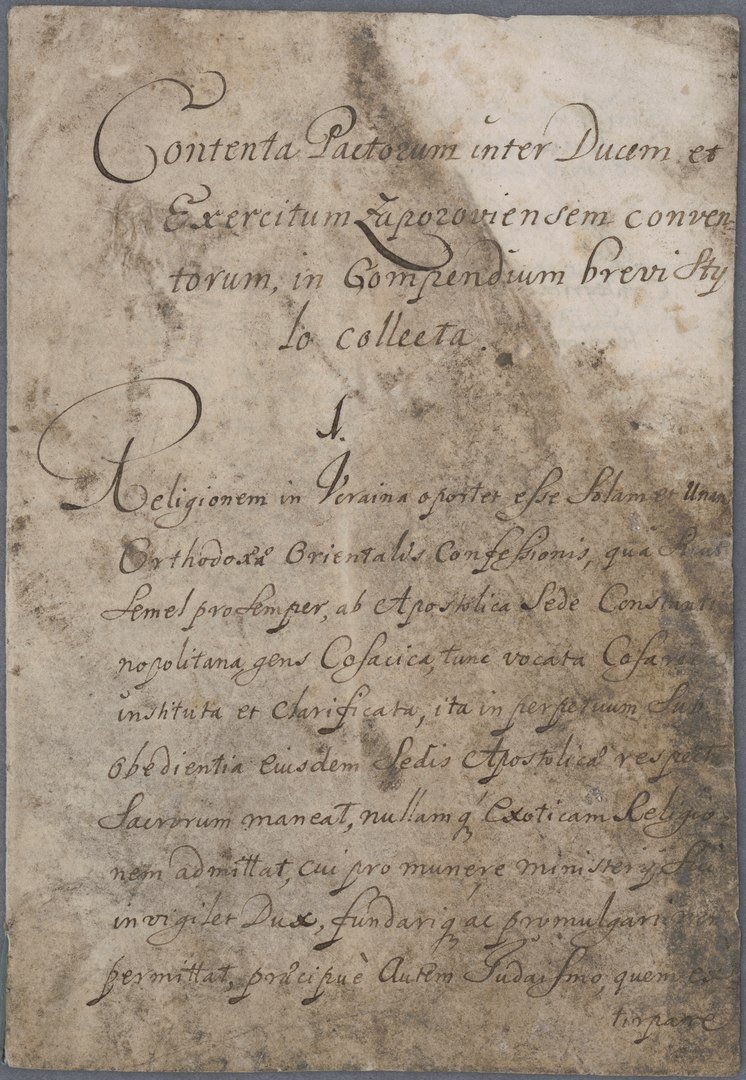 Contenta Pactorum inter Ducem et
Exercitum Zaporoviensem conven-
torum, in Compendium brevi Sty
lo collecta.
1.
Religionem in Ucraina oportet esse Solam et Unam
Orthodoxæ Orientalis Confessionis, quâ
Semel pro Semper, ab Apostolica Sede Constanti
nopolitana, gens Cosacica, tunc vocata
instituta et Clarificata, ita in perpetuum Sub
Obedientia eiusdem Sedis Apostolicæ respectu
Sacrorum maneat, nullamq́ Exoticam Religio
nem admittat, cui pro munere ministerij Sui
invigilet Dux, fundariq ac promulgari non
permittat, præcipuè Autem Judaismo, quem ex
tirpare